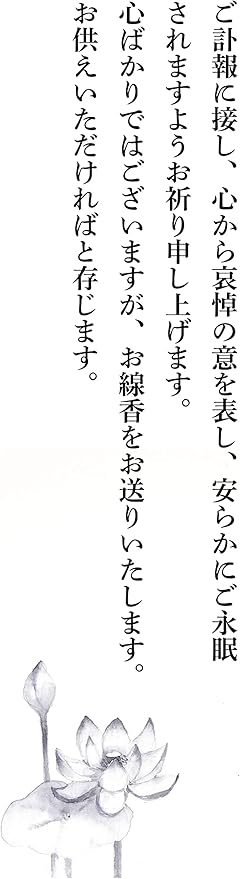 ご訃報に接し、心から哀悼の意を表し、安らかにご永眠
されますようお祈り申し上げます。
心ばかりではございますが、お線香をお送りいたします。
お供えいただければと存じます。